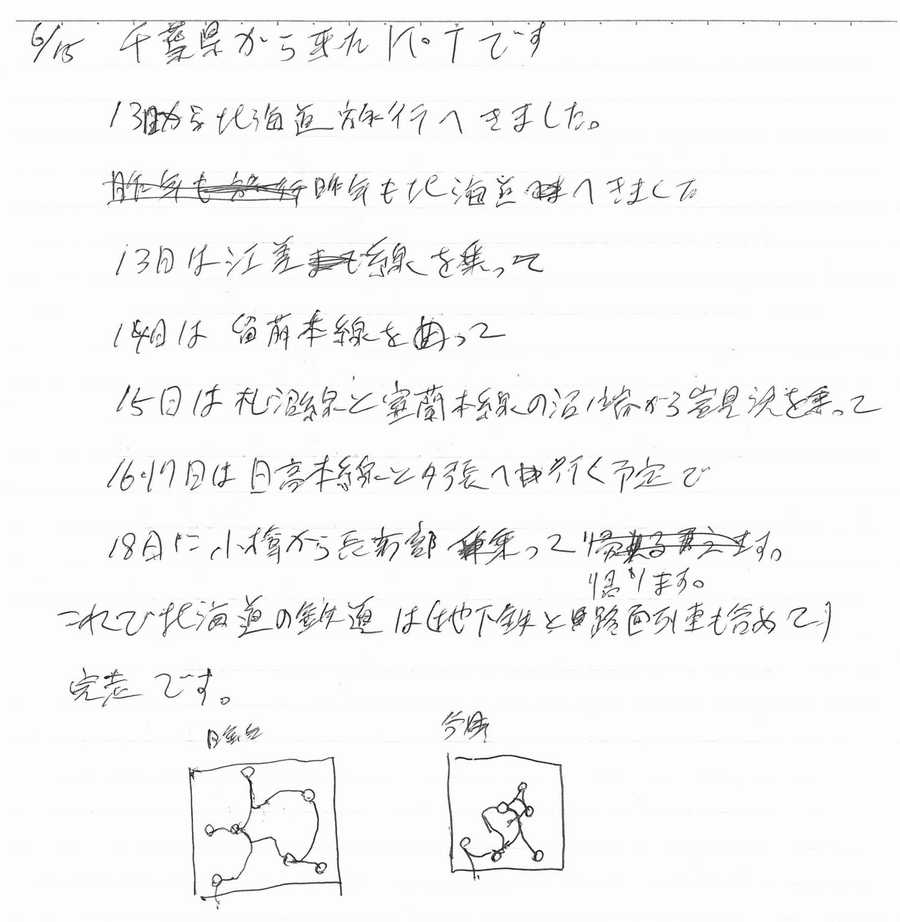 6/15 千葉県から来たK.Tです
13日から北海道旅行へきました。
昨年も北海道へきました
13日は江差線を乗って
14日は留萌本線を乗って
15日は札沼線と室蘭本線の沼ノ端から岩見沢を乗って
16.17日は日高本線と夕張へ行く予定で
18日に小樽から長万部乗って
帰ります。
これで北海道の鉄道は(地下鉄と路面列車も含めて)
完走です。
昨年 今年